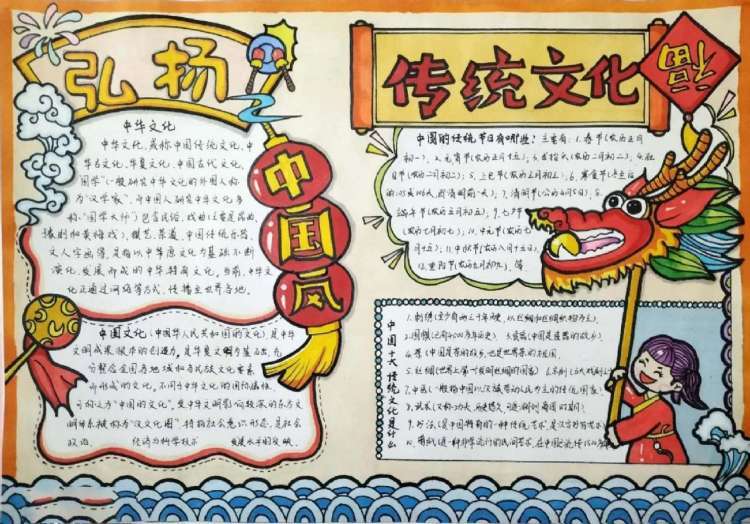 弘扬
传统文化
福
中国风
中华文化
中华文化,亦称中国传统文化,中
华古文化、华夏文化、中国古代文化、
国学(一般研究中华文化的外国人称
为"汉学家",而中国人研究中华文化多
称"国学大师")包含民俗、戏曲(
棋艺、茶道、中国传统乐器、
文人字画等,是指以中华原文化为基础不断
演化、发展而成的中华特有文化。当前,中华文
化正通过网络等方式,传播至世界各地。
中国文化(中国华人民共和国的文化),是中华
文明成果根本的创造力,是华夏文明为基础,充
分整合全国各地域和各民族文化要素
而形成的文化。不同于中华文化的国际属性,
可称之为"中国的文化"。受中华文明影响较深的东方文
明体系被称为"汉文化圈",特指社会意识形态,是社会
政治、
中国的传统节日有哪些?主要有:1.春节(农历正月
初一)、2.元宵节(农历正月十五)、3.龙抬头(农历二月初二)、4.社
日节(农历二月初二)、5.上巳节(农历三月初三)、6.寒食节(冬至后
的105天或106天,即清明前一天)、7.清明节(公历4月5日)、8.
端午节(农历五月初五)、9.七夕节
(农历七月初七)、10.中元节(农历七
月十五)、11.中秋节(农历八月十五)、
12.重阳节(农历九月初九)、等
中国十大传统文化是什么
1.刺绣(至少有两三千年历史,从丝绸和丝绸织物而来)。
2.围棋(已有4000多年历史)、3.瓷器(中国是瓷器的故乡)。
4.茶(中国是茶的故乡,也是世界茶的祖国)。
5.丝绸(世界上第一个发明丝绸的国家)
7.中医(一般指中国以汉族劳动人民为主的传统医学)。
8.武术(又称功夫,历史悠久,可追溯到商周时期)。
9.书法(是中国特有的一种传统艺术,是汉字